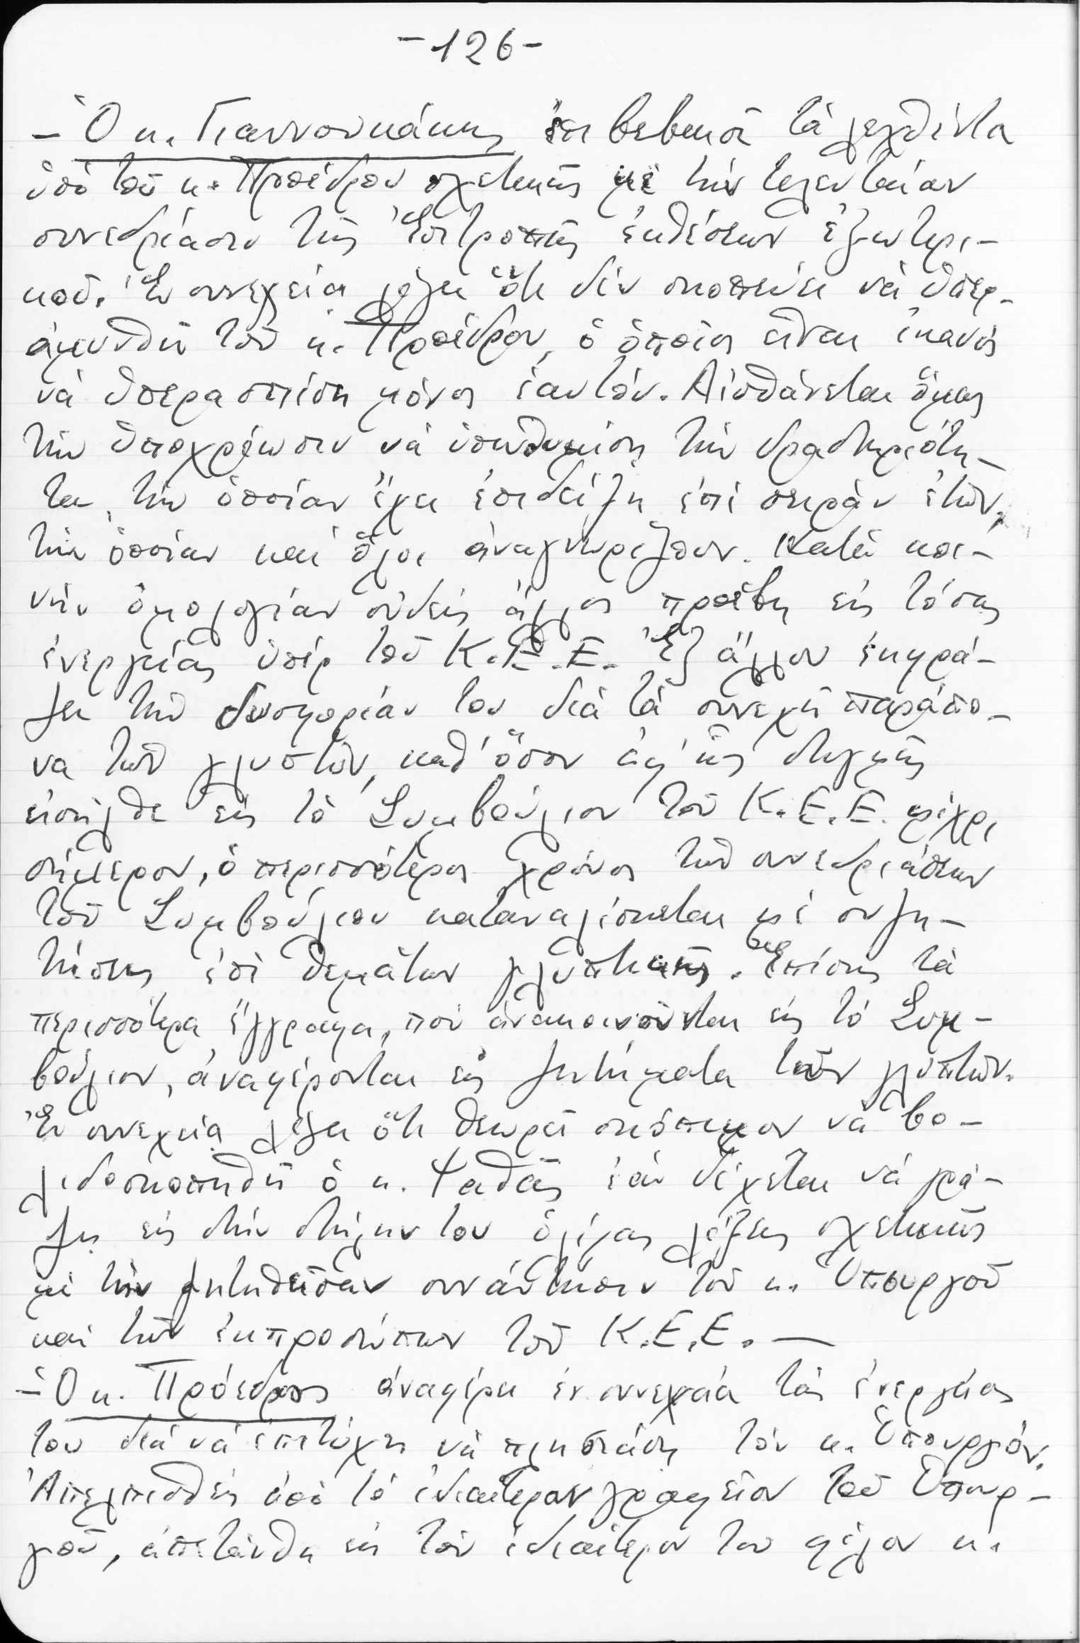 -126-
- Ὁ κ. Γιαννουκάκης ἐπιβεβαιοῖ τὰ λεχθέντα
ὑπὸ τοῦ κ. Προέδρου σχετικῶς μὲ τὴν τελευταίαν
συνεδρίασιν τῆς Ἐπιτροπῆς ἐκθέσεων ἐξωτερι-
κοῦ. Ἐν συνεχείᾳ λέγει ὅτι δὲν σκοπεύει νὰ ὑπερ-
αμυνθῇ τοῦ κ. Προέδρου, ὁ ὁποῖος εἶναι ἱκανὸς
νὰ ὑπερασπίσῃ μόνος ἑαυτόν. Αἰσθάνεται ὅμως
τὴν ὑποχρέωσιν νὰ ὑπενθυμίσῃ τὴν δραστηριότη-
τα, τὴν ὁποίαν ἔχει ἐπιδείξῃ ἐπὶ σειρὰν ἐτῶν,
τὴν ὁποίαν καὶ ὅλοι ἀναγνωρίζουν. Κατὰ κοι-
νὴν ὁμολογίαν οὐδεὶς ἄλλος προέβη εἰς τόσας
ἐνεργείας ὑπὲρ τοῦ Κ.Ε.Ε. Ἐξ ἄλλου ἐκφρά-
ζει τὴν δυσφορίαν του διὰ τὰ συνεχῆ παράπο-
να τῶν γλυπτῶν, καθ' ὅσον ἀφ' ἧς στιγμῆς
εἰσῆλθε εἰς τὸ Συμβούλιον τοῦ Κ.Ε.Ε. μέχρι
σήμερον, ὁ περισσότερος χρόνος τῶν συνεδριάσεων
τοῦ Συμβουλίου καταναλίσκεται μὲ συζη-
τήσεις ἐπὶ θεμάτων γλυπτικῆς. Ἐπίσης τὰ
περισσότερα ἔγγραφα, ποὺ ἀνακοινοῦνται εἰς τὸ Συμ-
βούλιον, ἀναφέρονται εἰς ζητήματα τῶν γλυπτῶν.
Ἐν συνεχείᾳ λέγει ὅτι θεωρεῖ σκόπιμον νὰ βο-
λιδοσκοπηθῇ ὁ κ. Ψαθᾶς ἐὰν δέχεται νὰ γρά-
ψῃ εἰς τὴν στήλην του ὀλίγας λέξεις σχετικῶς
μὲ τὴν ζητηθεῖσαν συνάντησιν τοῦ κ. Ὑπουργοῦ
καὶ τῶν ἐκπροσώπων τοῦ Κ.Ε.Ε. -
- Ὁ κ. Πρόεδρος ἀναφέρει ἐν συνεχείᾳ τὰς ἐνεργείας
του διὰ νὰ ἐπιτύχῃ νὰ πλησιάσῃ τὸν κ. Ὑπουργόν.
Ἀπελπισθεὶς ἀπὸ τὸ ἰδιαίτερον γραφεῖον τοῦ Ὑπουρ-
γοῦ, ἀπετάνθη εἰς τὸν ἰδιαίτερον του φίλον κ.